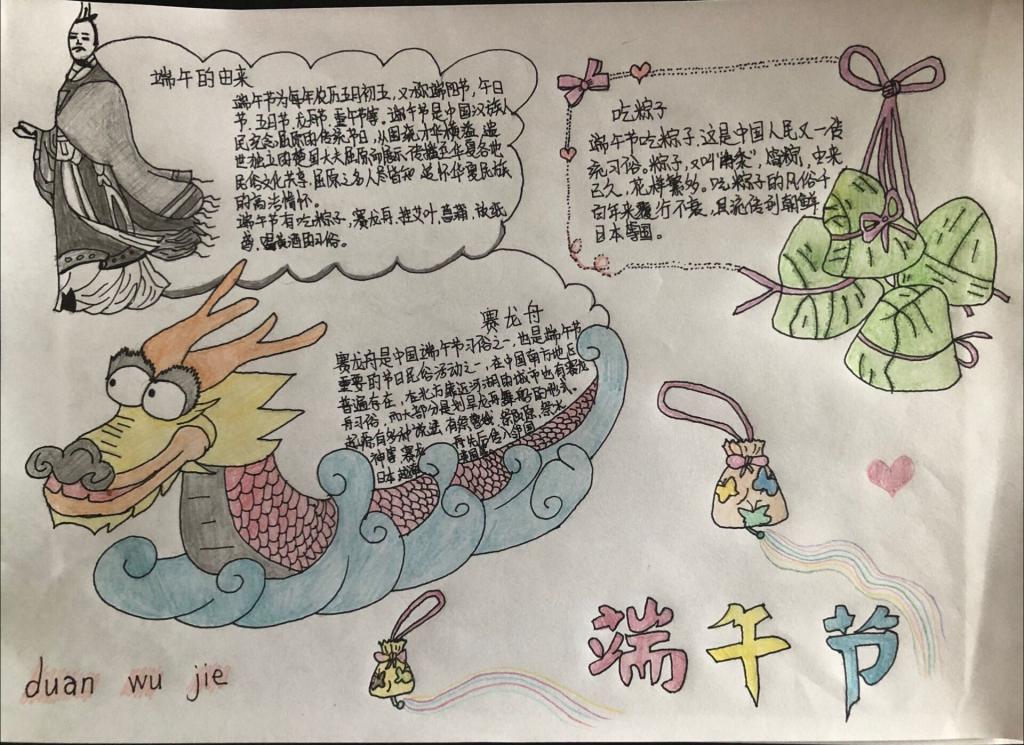 端午的由来
端午节为每年农历五月初五，又称端阳节，午日
节、五月节、龙舟节、重午节等。端午节是中国汉族人
民纪念屈原的传统节日，从国求才华横溢、遗
世独立的楚国大夫屈原向展示传播至华夏各地
民俗文化共享，屈原之名人尽皆知，追怀华夏民族
的高洁情怀。
端午节有吃粽子，赛龙舟，挂艾叶，菖蒲，放纸
鸢，喝黄酒的习俗。
吃粽子
端午节吃粽子，这是中国人民又一传
统习俗。粽子，又叫"角黍"，筒粽，由来
已久，花样繁多。吃粽子的风俗千
百年来覆行不衰，且流传到朝鲜
日本等国。
赛龙舟
赛龙舟是中国端午节习俗之一，也是端午节
重要的节日民俗活动之一，在中国南方地区
普遍存在，在北方靠近河湖的城市也有赛龙
舟习俗，而大部分是划旱龙舟舞船的形式。
起源有多种说法，有祭曹娥，祭屈原，祭水
神等 赛龙 舟先后传入邻国
日本 越南
端午节
duan wu jie